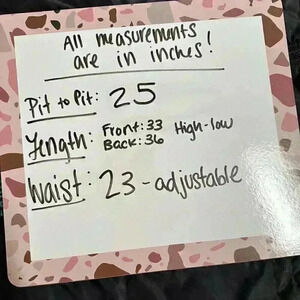 All measurements
are in inches!
Pit to Pit: 25
Length: Front: 33 High-low
Back: 36
Waist: 23 - adjustable